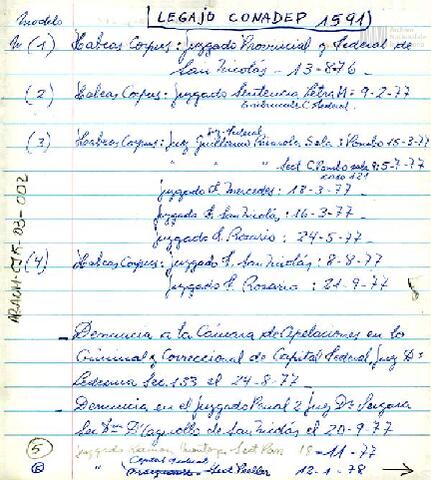 modelo [LEGAJO CONADEP 1591]
N (1) Habeas Corpus: Juzgado Provincial y Federal de
San Nicolás - 13-8-76
(2) Habeas Corpus: Juzgado Sentencia Letra M: 9-2-77
Federal
(3) Habeas Corpus: Juez Guillermo Rivarola Sala 3 Pombo 15-3-77
" " " Sect C. Pombo sala 9: 5-7-77
121
Juzgado F. Mercedes: 18-3-77
Juzgado F. San Nicolás: 16-3-77
Juzgado F. Rosario: 24-5-77
(4) Habeas Corpus: Juzgado F. San Nicolás: 8-8-77
Juzgado F. Rosario: 21-9-77
ARACHI-CTR-03-002
- Denuncia a la Cámara de Apelaciones en lo
Criminal y Correccional de Capital Federal, Juez Dr
Ledesma Sec 133 el 24-8-77
- Denuncia en el Juzgado Penal 2 Juez Dr Vergara
de San Nicolás el 20-9-77
(5) Juzgado Ramon Montoya Sect Pan 18-11-77
Capital Federal
(6) " Sect 12-1-78 →